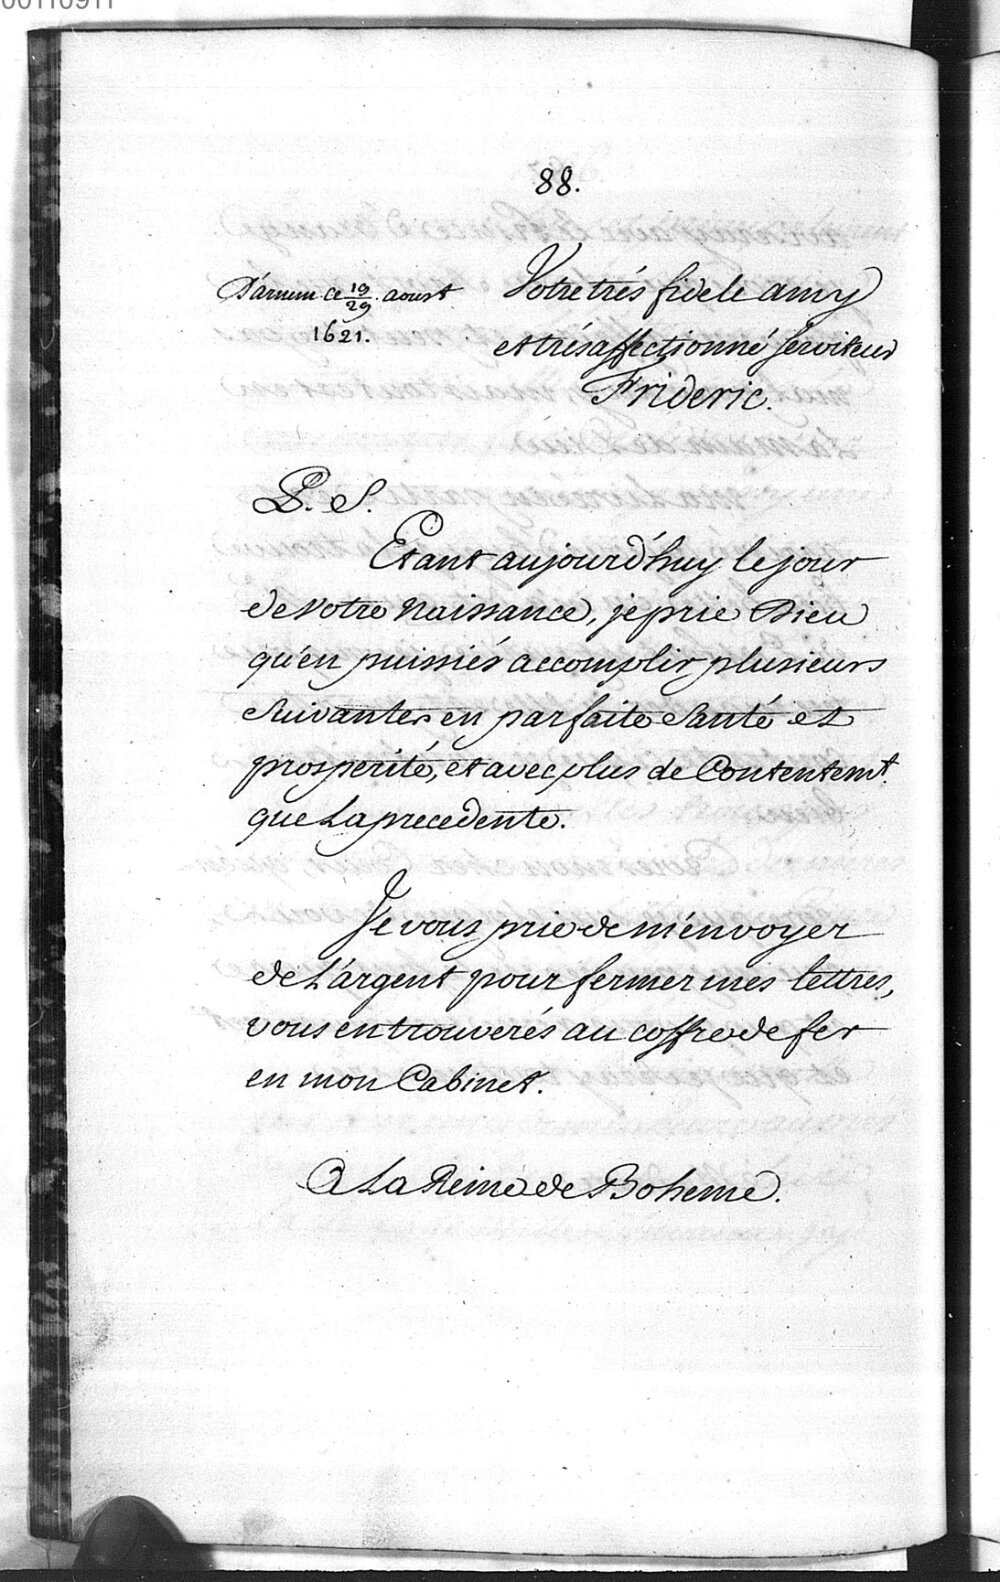 00110911
88.
D'arnem ce 19/29 aoust
1621.
Votre trés fidele amy
et trés affectionné serviteur
Frideric.
P. S.
Etant aujourd'huy le jour
de votre naissance, je prie Dieu
qu'en puissiés accomplir plusieurs
suivantes en parfaite santé et
prosperité, et avec plus de Contentemt.
que la precedente.
Je vous prie de m'envoyer
de l'argent pour fermer mes lettres,
vous en trouverés au coffre de fer
en mon Cabinet.
A la Reine de Boheme.